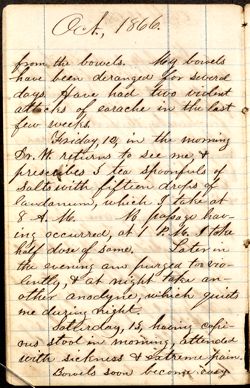 Oct, 1866.
from the bowels. My bowels
have been deranged for several
days. Have had two violent
attacks of earache in the last
few weeks.
Friday, 12, in the morning
Dr. M. returns to see me, &
prescribes 3 tea spoonfuls of
Salts with fifteen drops of
laudanum, which I take at
8 A. M. No passage hav-
ing occurred, at 1 P. M. I take
half dose of same. Later in
the evening am purged too vio-
lently, & at night take an-
other anodyne, which quiets
me during night.
Saturday, 13, having copi-
ous stool in morning, attended
with sickness & extreme pain.
Bowels soon become easy